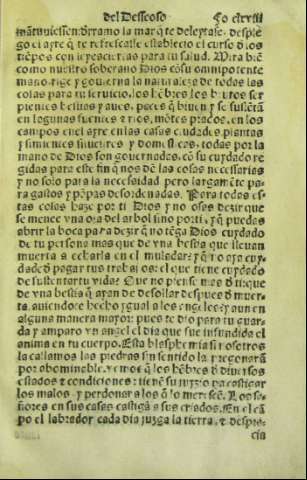 del Desseoso Fo clxviii
mantuuiessen: derramo la mar q̃ te deleytase. desple
go el ayre q̃ te refrescasse establecio el curso d̃ los
tiẽpos con sus para tu salud. Mira biẽ
como nuestro soberano Dios cõ su omnipotente
mano rige y gouierna la naturaleza de todas las
cosas para tu seruicio, los hõbres los brutos ser
pientes bestias y aues, peces q̃ biuen y se sustẽtã
en lagunas fuentes z rios, mõtes prados, en los
campos en el ayre en las casas ciudades plantas
y simientes siluestres y domesticas, todas por la
mano de Dios son gouernadas, cõ su cuydado re
gidas para este fin q̃ nos dẽ las cosas necessarias
y no solo para la necessidad pero largamẽte pa
ra gastos y põpas desordenadas. Para todas es
tas cosas haze por ti Dios y no oses dezir que
se menee vna oja del arbol sino por ti, y q̃ puedas
abrir la boca para dezir q̃ no tẽga Dios cuydado
de tu persona mas que de vna bestia que lleuan
muerta a echarla en el muladar? y q̃ no aya cuy
dado d̃ pagar tus trabajos: el que tiene cuydado
de sustentar tu vida? Que no piense mas d̃ ti que
de vna bestia q̃ ayan de dessollar despues d̃ muer
ta, auiendote hecho ygual a los angeles? y aun en
alguna manera mayor: pues te dio para tu guar
da y amparo vn angel el dia que fue infundida el
anima en tu cuerpo. Esta blasphemia si nosotros
la callamos las piedras sin sentido la pregonarã
por abominable. Vemos q̃ los hõbres d̃ diuersos
estados z condiciones: tienẽ su juyzio pa castigar
los malos y perdonar a los q̃ lo merescẽ. Los se
ñores en sus casas castigã a sus criados. En el cã
po el labrador cada dia juzga la tierra, z despre
cia